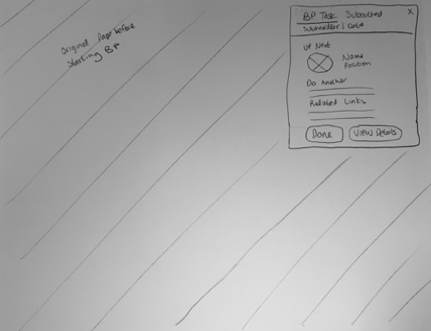 Original Page before
Starting BP
BP Task Submitted
X
Submitter | Date
Up Next
Name
Position
Do Another
Related Links
Done
View Details